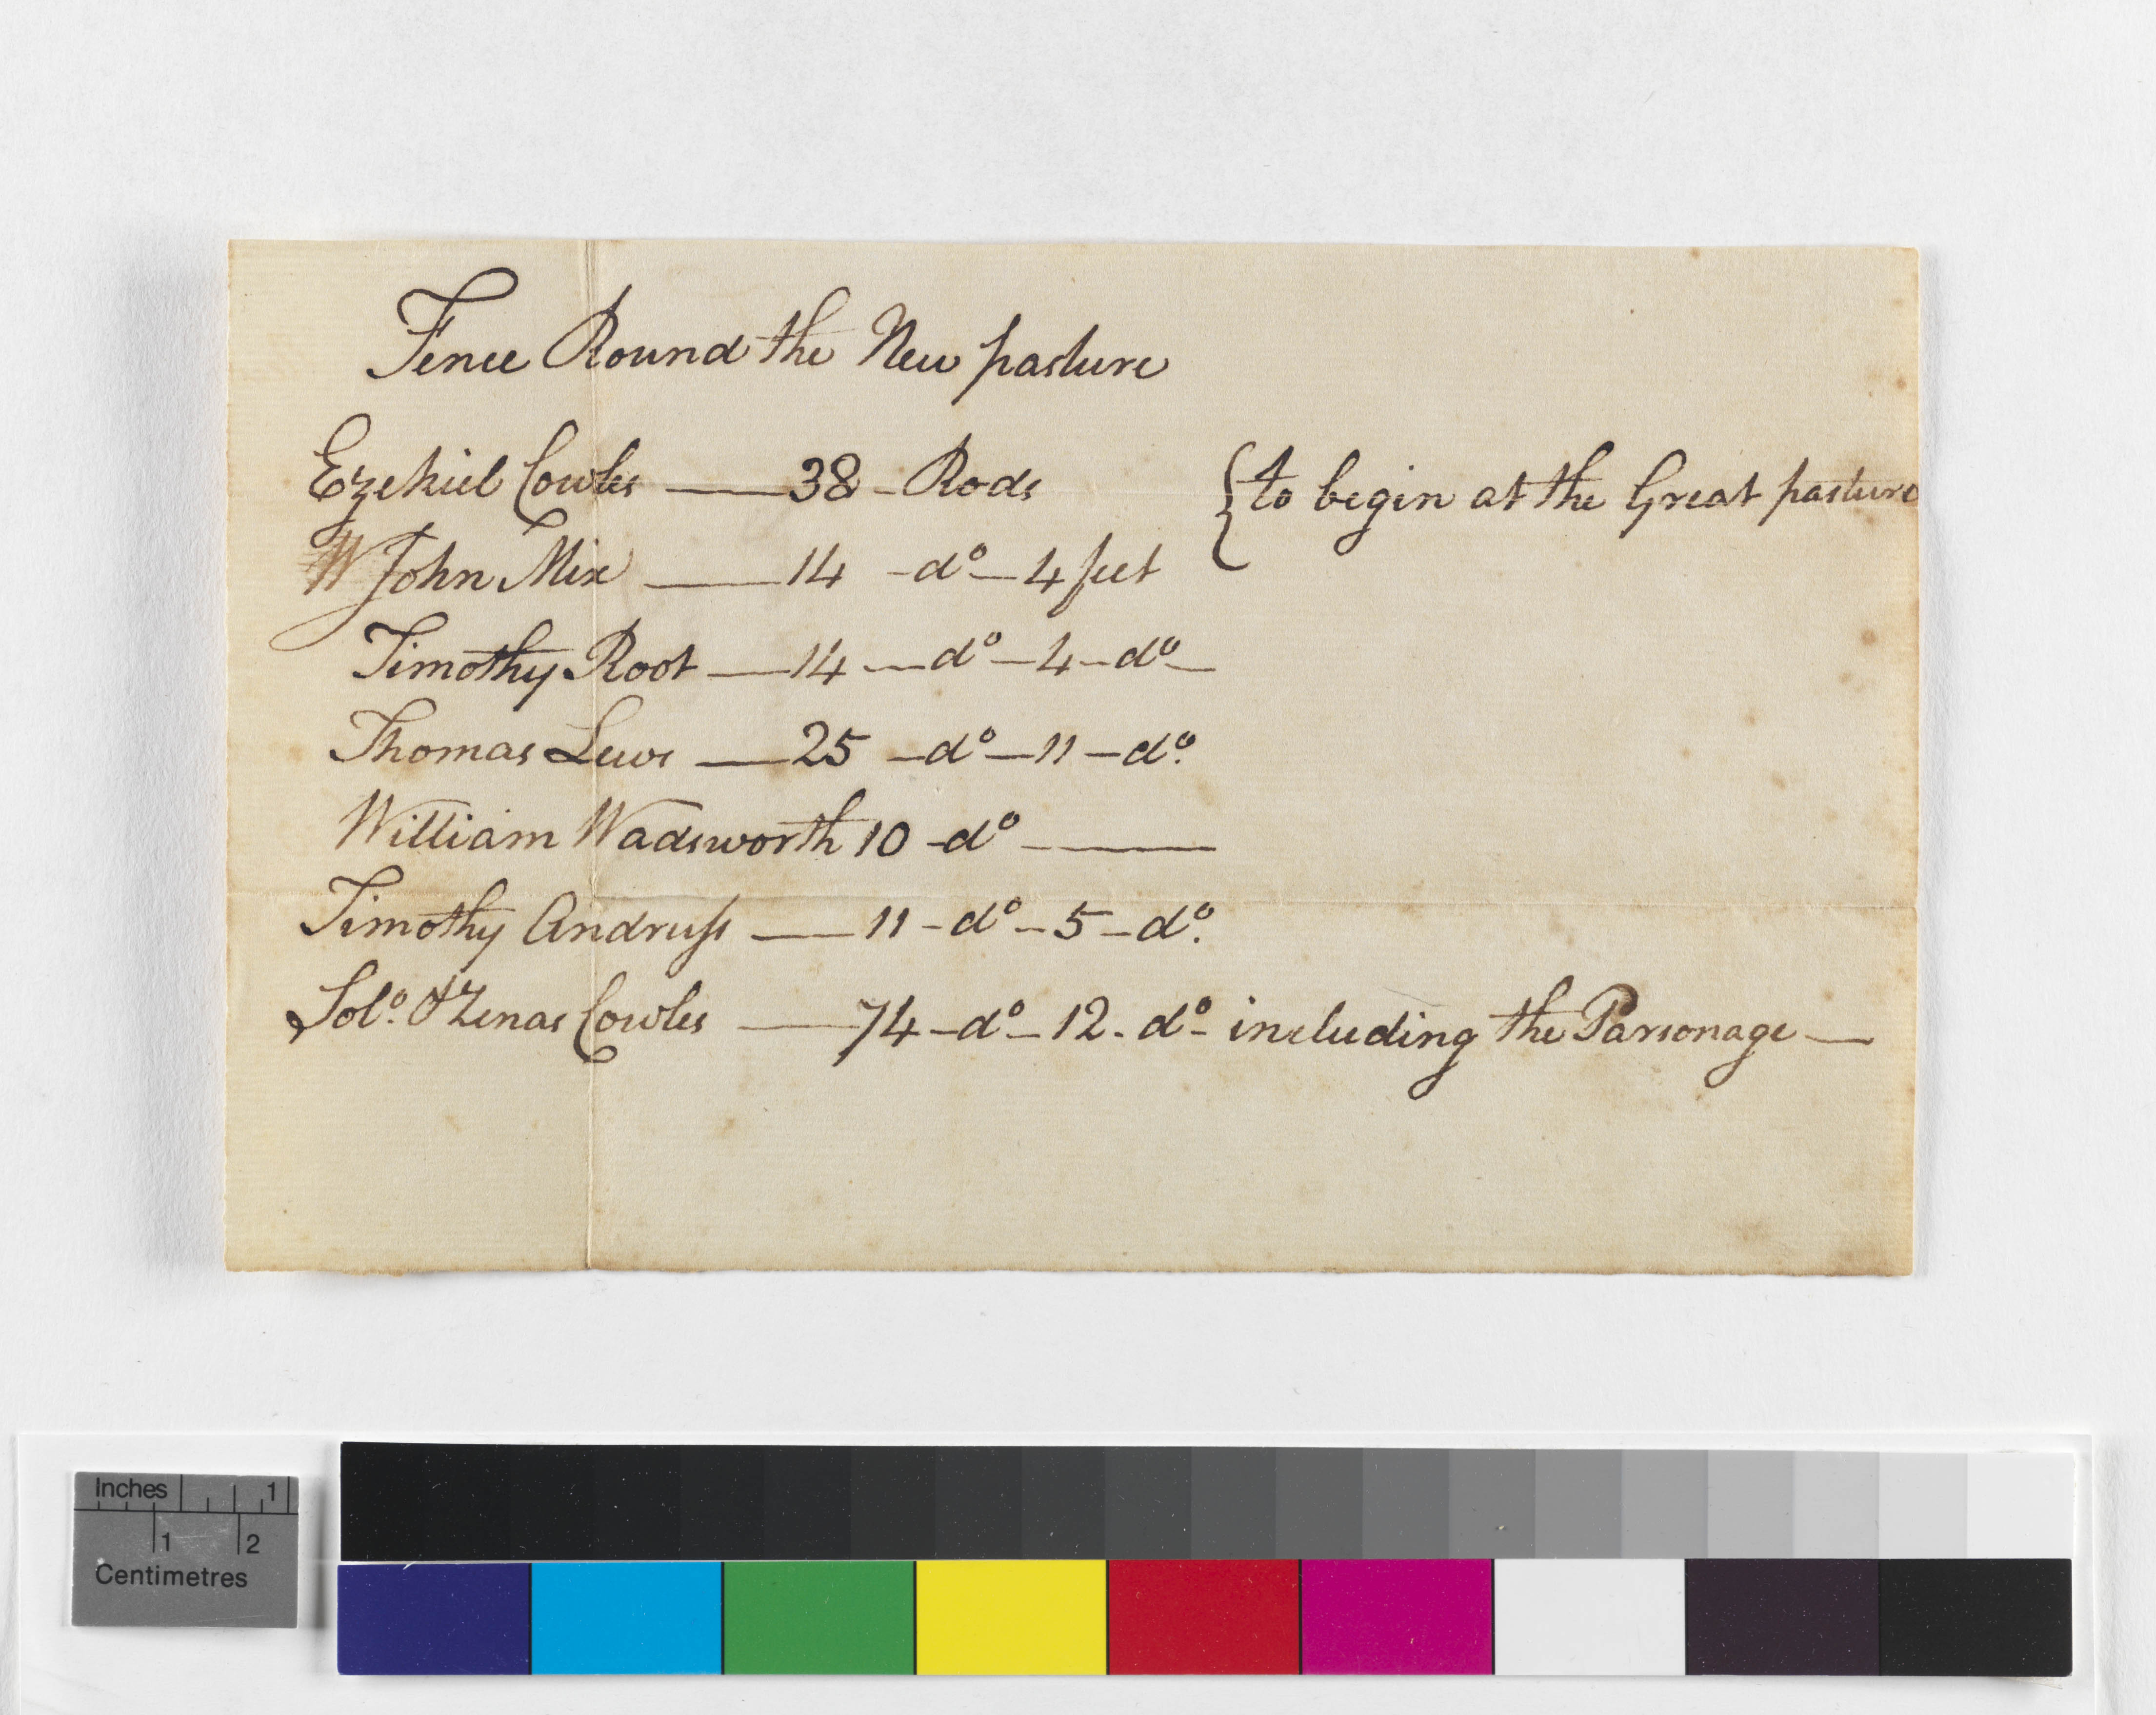 Fence Round the New pasture
Ezekiel Cowles — 38 - Rods { to begin at the Great pasture
W John Mix — 14 - dº - 4 feet
Timothy Root — 14 — dº - 4 - dº -
Thomas Lewis — 25 - dº - 11 - dº.
William Wadsworth 10 - dº —
Timothy Andruss — 11 - dº - 5 - dº.
Solº. & Zenas Cowles — 74 - dº - 12 - dº - including the Parsonage —
Inches 1
1 2
Centimetres